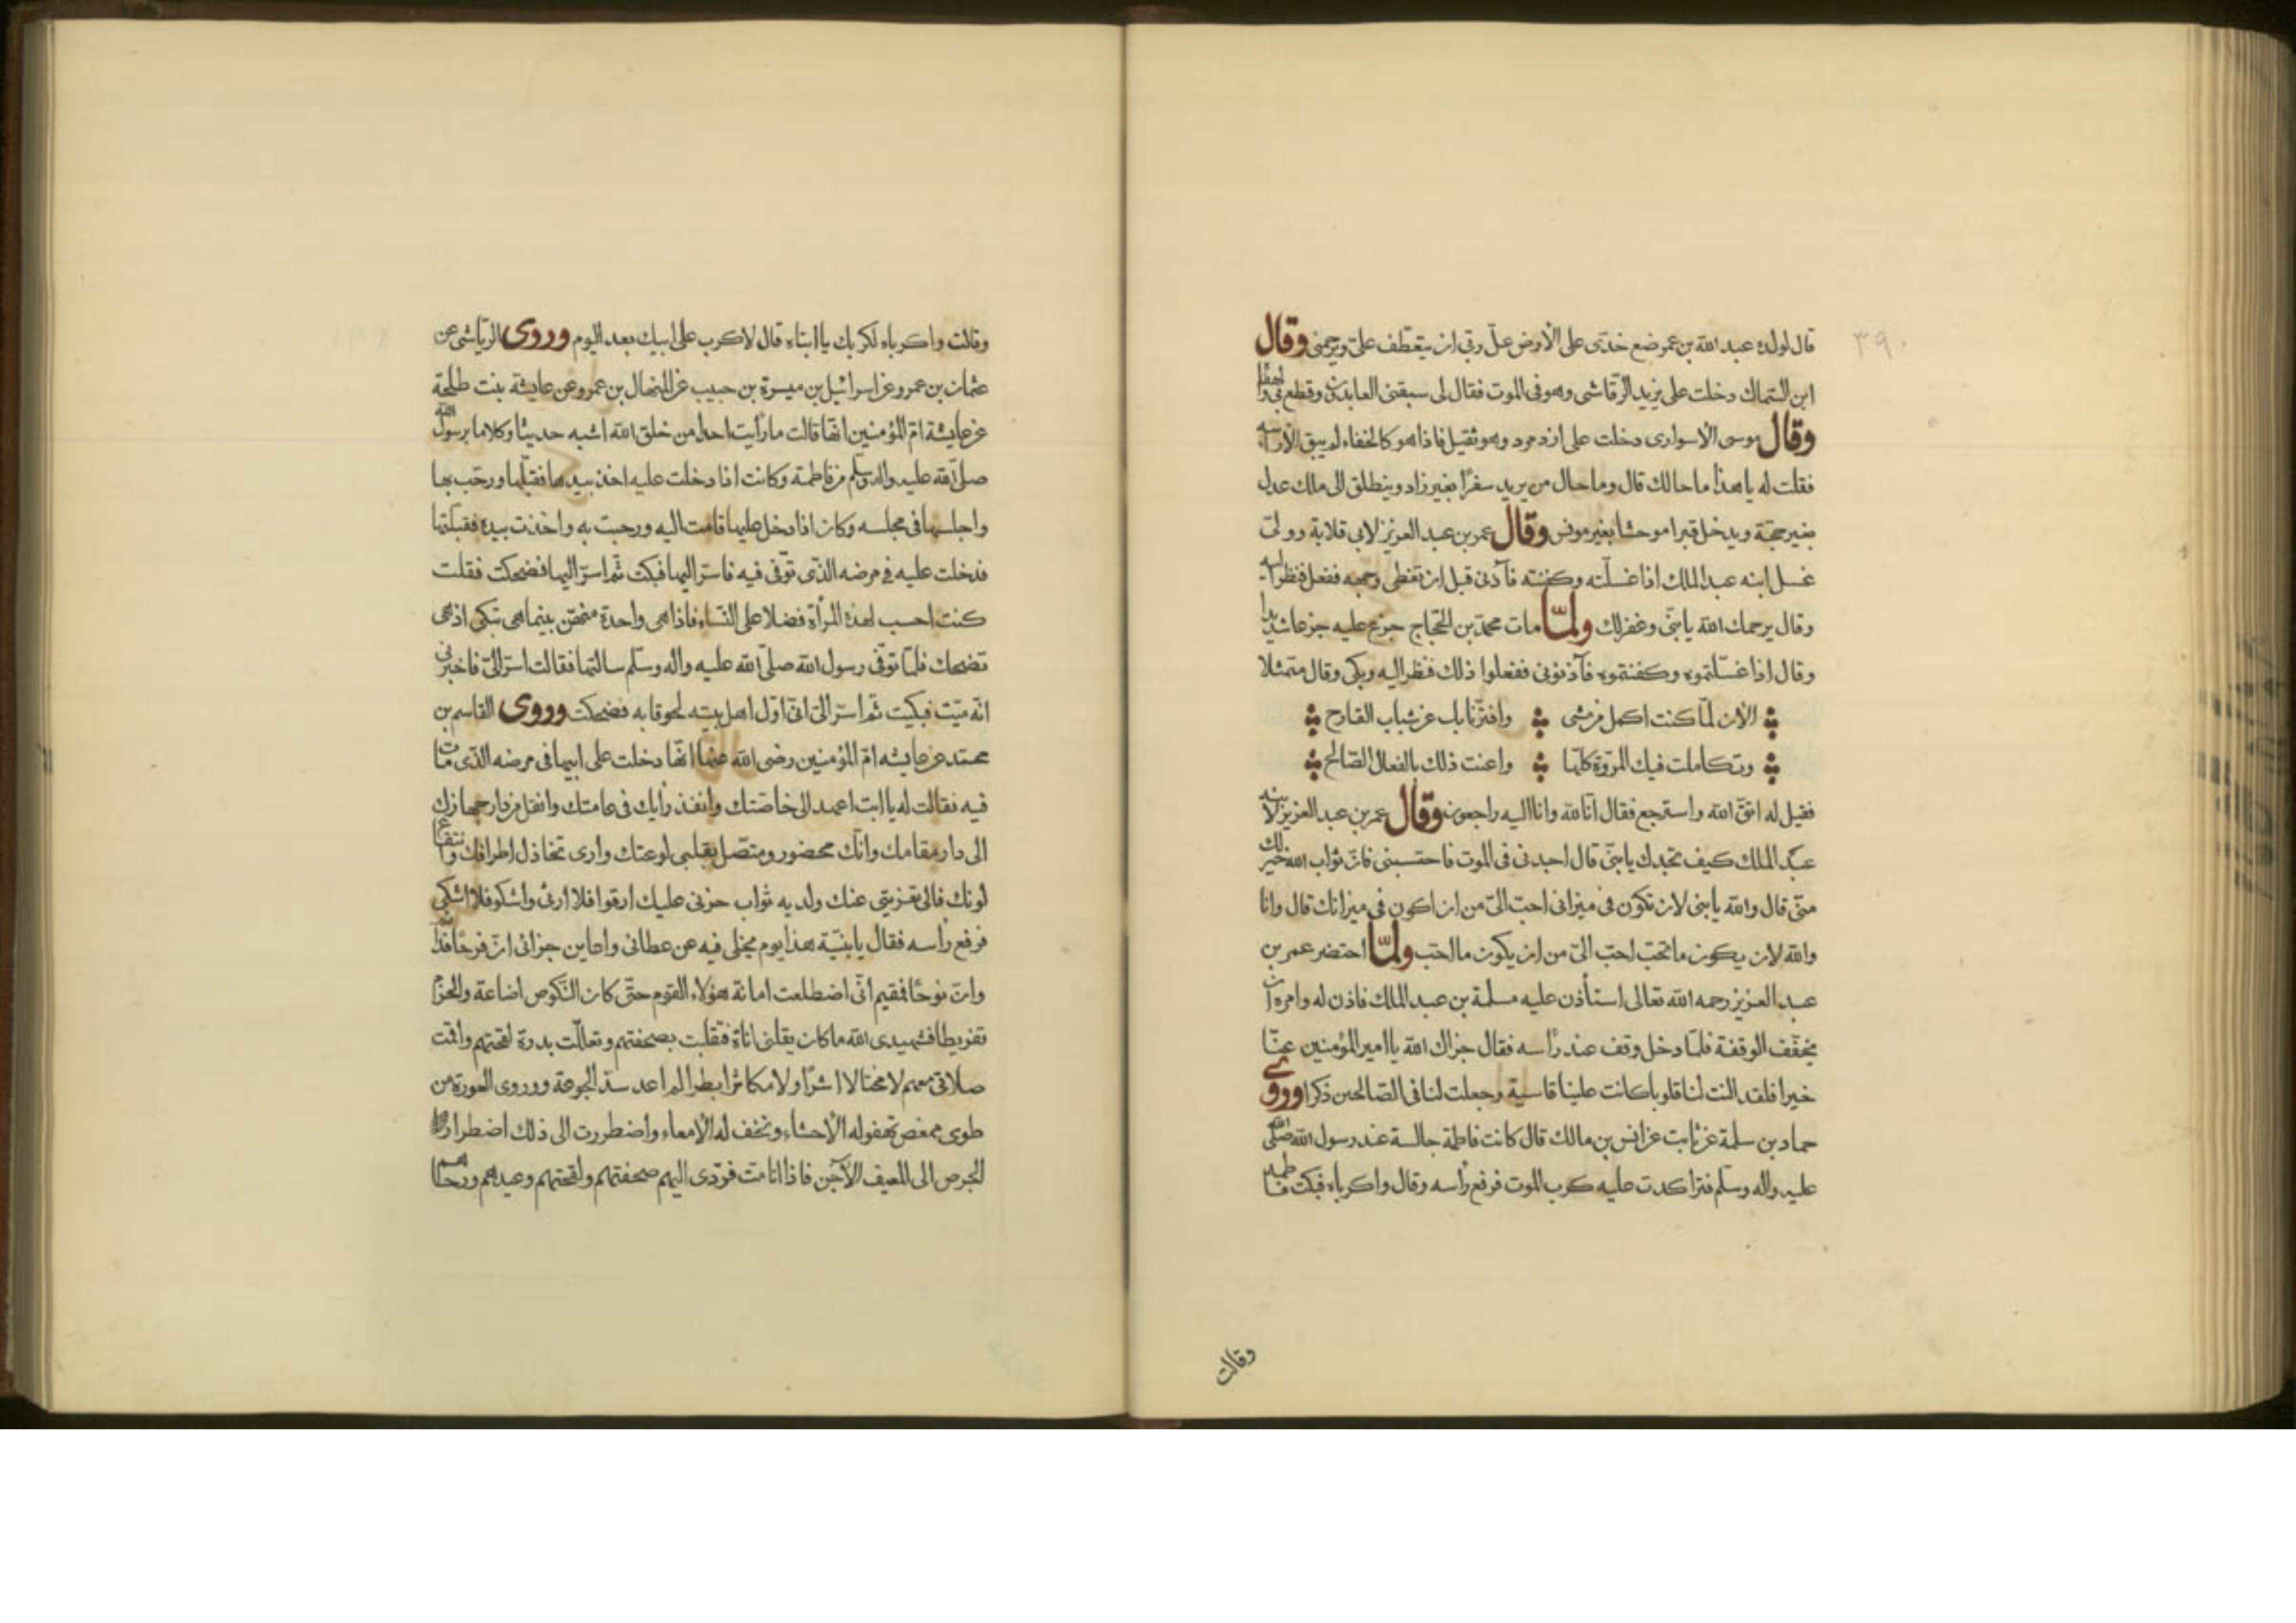 ٣٩٠
قال لولده عبد الله بن عمر ضع خدّى على الأرض علّ ربّى ان يتعطّف علىّ ويرحمنى وقال
ابن السّماك دخلت على يزيد الرّقاشى وهو فى الموت فقال لى سبقنى العابدون وقطع بى والهفا
وقال موسى الاسوارى دخلت على ازدمرد وهو ثقيل فاذا هو كالخفاء لم يبق الّا راسه
فقلت له يا هذا ما حالك قال وما حال من يريد سفرًا بغير زاد وينطلق الى ملك عدل
بغير حجّة ويدخل قبرا موحشا بغير مونس وقال عمر بن عبد العزيز لابى قلابة وولى
غسل ابنه عبد الملك اذا غسلّته وكفنته فآذنى قبل ان تغطى وجهه ففعل فنظر اليه
وقال يرحمك الله يا بنىّ وغفر لك ولمّا مات محمّد بن الحجّاج جزع عليه جزعا شديدا
وقال اذا غسّلتموه وكفنتموه فآذنونى ففعلوا ذلك فنظر اليه وبكى وقال متمثلا
الآن لمّا كنت اكمل من مشى وافترّ نابك عن شباب القارح
وتكاملت فيك المروّة كلّها واعنت ذلك بالفعال الصّالح
فقيل له اتق الله واسترجع فقال انّا لله وانا اليه راجعون وقال عمر بن عبد العزيز لابنه
عبد الملك كيف تجدك يا بنىّ قال اجدنى فى الموت فاحتسبنى فانّ ثواب الله خير لك
منّى قال والله يا بنى لان تكون فى ميزانى احبّ الىّ من ان اكون فى ميزانك قال وانا
والله لان يكون ما تحبّ احبّ الىّ من ان يكون ما احبّ ولمّا احتضر عمر بن
عبد العزيز رحمه الله تعالى استأذن عليه مسلمة بن عبد الملك فاذن له وامره ان
يخفّف الوقفة فلمّا دخل وقف عند رأسه فقال جزاك الله يا امير المؤمنين عنّا
خيرا فلقد النت لنا قلوبا كانت علينا قاسية وجعلت لنا فى الصّالحين ذكرا وروى
حماد بن سلمة عن ثابت عن انس بن مالك قال كانت فاطمة جالسة عند رسول الله صلّى الله
عليه واله وسلّم فتراكدت عليه كرب الموت فرفع رأسه وقال واكرباه فبكت فاطمة
وقالت
وقالت واكرباه لكربك يا ابتاه قال لا كرب على ابيك بعد اليوم وروى الرّياشى عن
عثمان بن عمرو عن اسرائيل بن ميسرة بن حبيب عن المنهال بن عمرو عن عايشة بنت طلحة
عن عايشة امّ المؤمنين انّها قالت ما رأيت احدا من خلق الله اشبه حديثا وكلاما برسول الله
صلّى الله عليه واله وسلّم من فاطمة وكانت اذا دخلت عليه اخذ بيدها فقبّلها ورحّب بها
واجلسها فى مجلسه وكان اذا دخل عليها قامت اليه ورحبت به واخذت بيده فقبّلتها
فدخلت عليه فى مرضه الذّى توّفى فيه فاسرّ اليها فبكت ثمّ اسرّ اليها فضحكت فقلت
كنت احسب لهذه المرأة فضلا على النّساء فاذا هى واحدة منهنّ بينما هى تبكى اذ هى
تضحك فلمّا توفّى رسول الله صلّى الله عليه واله وسلّم سالتها فقالت اسرّ الىّ فاخبرنى
انّه ميّت فبكيت ثمّ اسرّ الىّ انّى اوّل اهل بيته لحوقا به فضحكت وروى القاسم بن
محمّد عن عايشه امّ المؤمنين رضى الله عنها انّها دخلت على ابيها فى مرضه الذّى مات
فيه فقالت له يا ابت اعهد الى خاصّتك وانفذ رأيك فى عامتك وانقل من دار جهازك
الى دار مقامك وانّك محضور ومتصّل بقلبى لوعتك وارى تخاذل اطرافك وانتقاع
لونك فالى تعزيتى عنك ولديه ثواب حزنى عليك ارقوا فلا ارقى واشكو فلا اشكى
فرفع رأسه فقال يا بنيّة هذا يوم يخلّى فيه عن عطائى واعاين جزائى ان فرحًا فدائم
وان نوحًا فمقيم انّى اضطلعت امانة هؤلاء القوم حتّى كان النّكوص اضاعة والحزم
تفريطا فشهيدى الله ما كان يقلنى اناة فتقلبت بصحفتهم وتعلّلت بدرة لقحتهم واقمت
صلاتى معهم لا مختالا اشرًا ولا مكاثرا بطرا لم اعد سدّ الجوعة وورى العورة من
طوى ممغص تهفو له الأحشاء وتخف له الأمعاء واضطررت الى ذلك اضطرار
الجرص الى المعيف الآجن فاذا انا مت فردّى اليهم صحفتهم ولقحتهم وعبدهم ورحاهم